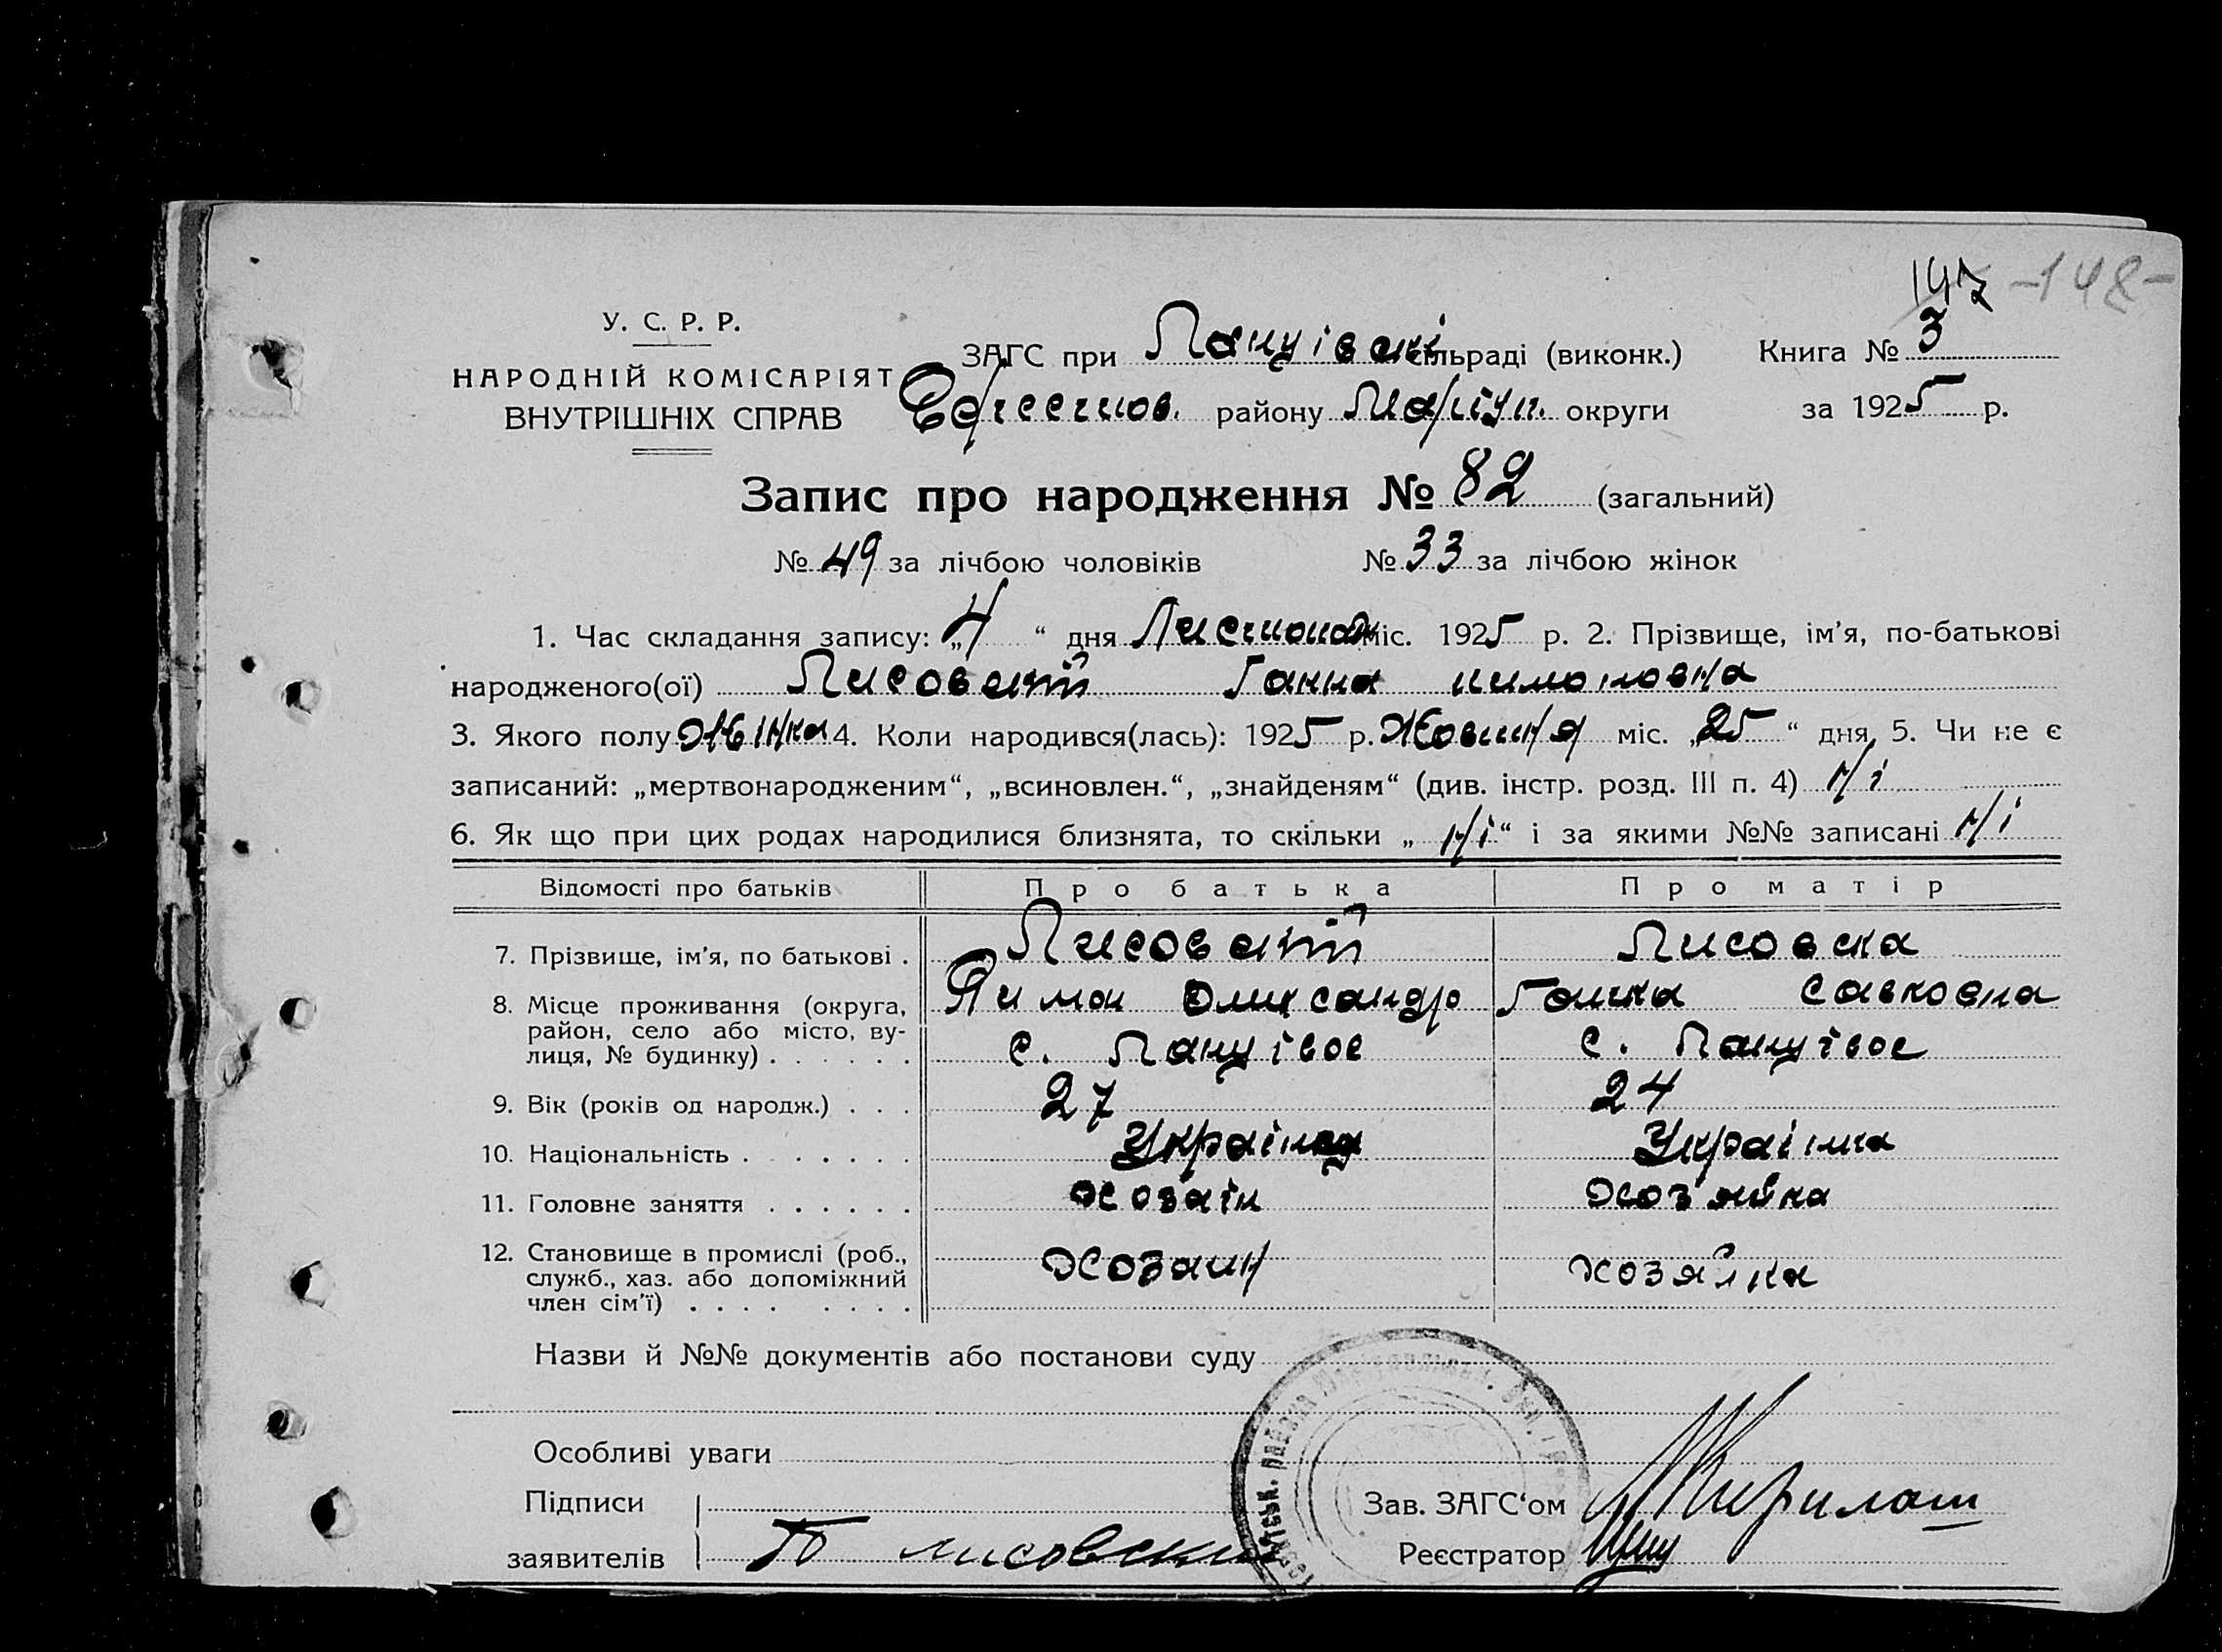 147 -148-
У. С. Р. Р.
НАРОДНІЙ КОМІСАРІЯТ
ВНУТРІШНІХ СПРАВ
ЗАГС при сільраді (виконк.) Книга № 3
району Маріуп. округи за 1925 р.
Запис про народження № 82 (загальний)
№ 49 за лічбою чоловіків № 33 за лічбою жінок
1. Час складання запису: „4“ дня Листопад міс. 1925 р. 2. Прізвище, ім'я, по-батькові
народженого(ої) Лисовский Ганна
3. Якого полу жінка 4. Коли народився(лась): 1925 р. Жовтня міс. „25“ дня 5. Чи не є
записаний: „мертвонародженим“, „всиновлен.“, „знайденям“ (див. інстр. розд. III п. 4) Ні
6. Як що при цих родах народилися близнята, то скільки „Ні“ і за якими №№ записані Ні
Відомості про батьків Про батька Про матір
7. Прізвище, ім'я, по батькові . Лисовский Лисовска
Пимон Олександр Ганна Савковна
8. Місце проживання (округа,
район, село або місто, ву-
лиця, № будинку) . . . . . . с. с.
9. Вік (років од народж.) . . . 27 24
10. Національність . . . . . . . Українец Украінка
11. Головне заняття . . . . . . хозаін хоз'яйка
12. Становище в промислі (роб.,
служб., хаз. або допоміжний
член сім'ї) . . . . . . . . хозаин хозяйка
Назви й №№ документів або постанови суду
Особливі уваги
Підписи
заявителів П лисовский
Зав. ЗАГС‘ом
Реєстратор